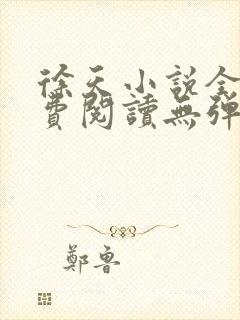 徐天小說全
費閱讀無彈
鄭魯